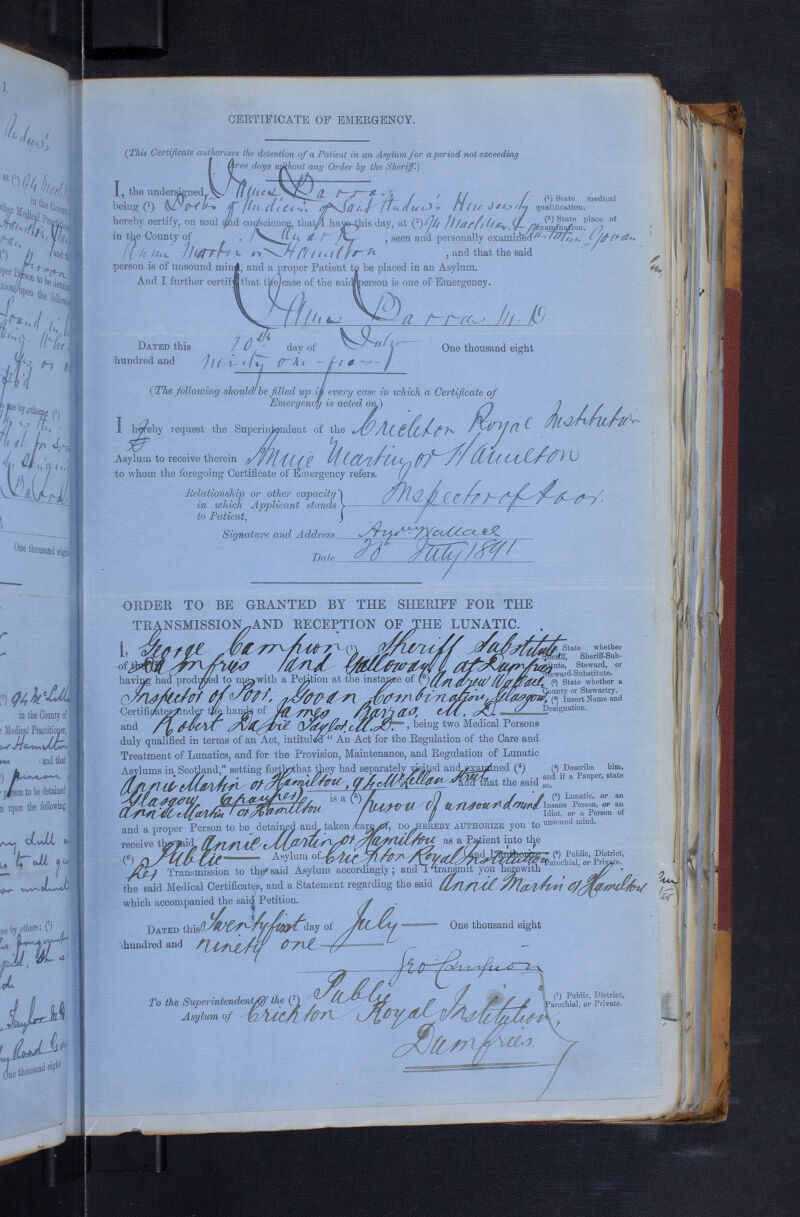 CERTIFICATE OF EMERGENCY.
(This Certificate authorizes the detention of a Patient in an Asylum for a period not exceeding
three days without any Order by the Sheriff.)
I, the undersigned, James Barras
being (¹) Doctor of Medicine of Saint Andrew's University
(¹) State medical
qualification.
hereby certify, on soul and conscience, that I have this day, at (²) 94 McLellan St
(²) State place of
examination.
in the County of Lanark, seen and personally examined Govan
Annie Martin or Hamilton, and that the said
person is of unsound mind, and a proper Patient to be placed in an Asylum.
And I further certify that the case of the said person is one of Emergency.
James Barras M.D
DATED this 20th day of July One thousand eight
hundred and ninety one
(The following should be filled up in every case in which a Certificate of
Emergency is acted on.)
I hereby request the Superintendent of the Crichton Royal Institution
Asylum to receive therein Annie Martin or Hamilton
to whom the foregoing Certificate of Emergency refers.
Relationship or other capacity
in which Applicant stands
to Patient,
Inspector of Poor.
Signature and Address Andw Wallace
Date 20 July 1891
ORDER TO BE GRANTED BY THE SHERIFF FOR THE
TRANSMISSION AND RECEPTION OF THE LUNATIC.
I, George Campion (¹) Sheriff Substitute
(¹) State whether
Sheriff, Sheriff-Sub-
stitute, Steward, or
Steward-Substitute.
of the (²) Dumfries and Galloway at Dumfries
(²) State whether a
County or Stewartry.
having had produced to me with a Petition at the instance of (³) Andrew Wallace,
(³) Insert Name and
Designation.
Inspector of Poor, Govan Combination, Glasgow,
Certificates under the hands of James Barras, M.D.
and Robert Taylor, M.D., being two Medical Persons
duly qualified in terms of an Act, intituled "An Act for the Regulation of the Care and
Treatment of Lunatics, and for the Provision, Maintenance, and Regulation of Lunatic
Asylums in Scotland," setting forth that they had separately visited and examined (⁴)
(⁴) Describe him,
and if a Pauper, state
so.
Annie Martin or Hamilton, 94 McLellan Street
Glasgow (a pauper) and that the said
Annie Martin or Hamilton is a (⁵) person of unsound mind
(⁵) Lunatic, or an
Insane Person, or an
Idiot, or a Person of
unsound mind.
and a proper Person to be detained and taken care of, DO HEREBY AUTHORIZE you to
receive the said Annie Martin or Hamilton as a Patient into the
(⁶) Public Asylum of Crichton Royal Institution and I authorize
(⁶) Public, District,
Parochial, or Private.
her Transmission to the said Asylum accordingly; and I transmit you herewith
the said Medical Certificates, and a Statement regarding the said Annie Martin or Hamilton
which accompanied the said Petition.
DATED this Twenty first day of July One thousand eight
hundred and ninety one
Geo Campion
To the Superintendent of the (⁷) Public
(⁷) Public, District,
Parochial, or Private.
Asylum of Crichton Royal Institution,
Dumfries.